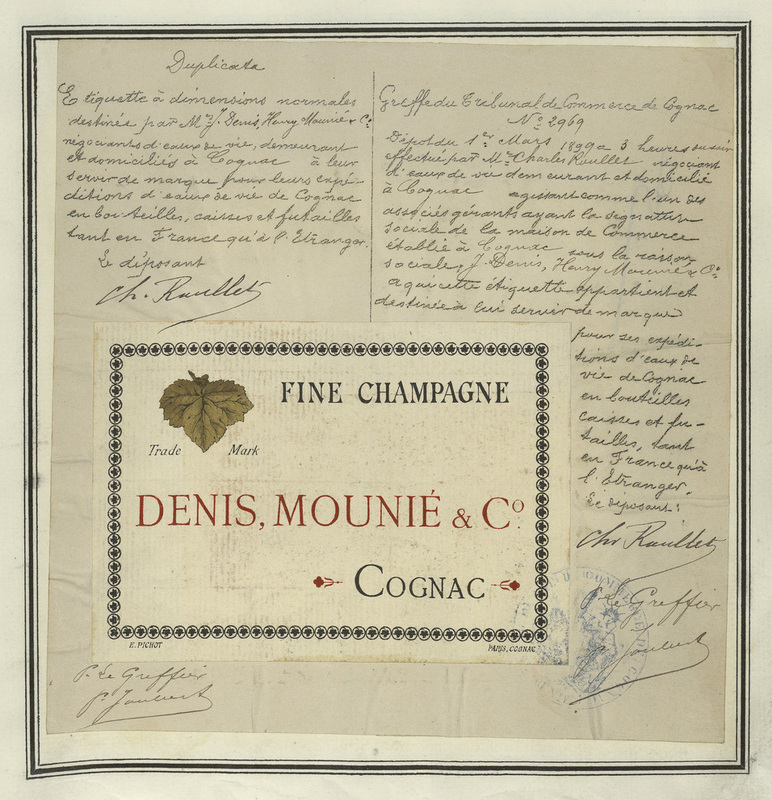 Duplicata
Etiquette à dimensions normales
destinée par Mrs J. Denis, Henry Mounié & Cie
négociants d'eaux de vie, demeurant
et domiciliés à Cognac à leur
servir de marque pour leurs expé-
ditions d'eaux de vie de Cognac
en bouteilles, caisses et futailles
tant en France qu'à l'Etranger.
Le déposant
Ch. Roullet
Greffe du Tribunal de Commerce de Cognac
No 2969
Dépôt du 1er Mars 1899 à 3 heures du soir
effectué par Mr Charles Roullet négociant
d'eaux de vie demeurant et domicilié
à Cognac agissant comme l'un des
associés gérants ayant la signature
sociale de la maison de Commerce
établie à Cognac sous la raison
sociale, J. Denis, Henry Mounié & Cie
à qui cette étiquette appartient et
destinée à lui servir de marque
pour ses expédi-
tions d'eaux de
vie de Cognac
en bouteilles
caisses et fu-
tailles, tant
en France qu'à
l'Etranger.
Le déposant:
Ch. Roullet
P. Le Greffier
P. Joubert
FINE CHAMPAGNE
Trade Mark
DENIS, MOUNIÉ & Co
COGNAC
E. PICHOT
PARIS, COGNAC
P. Le Greffier
P. Joubert